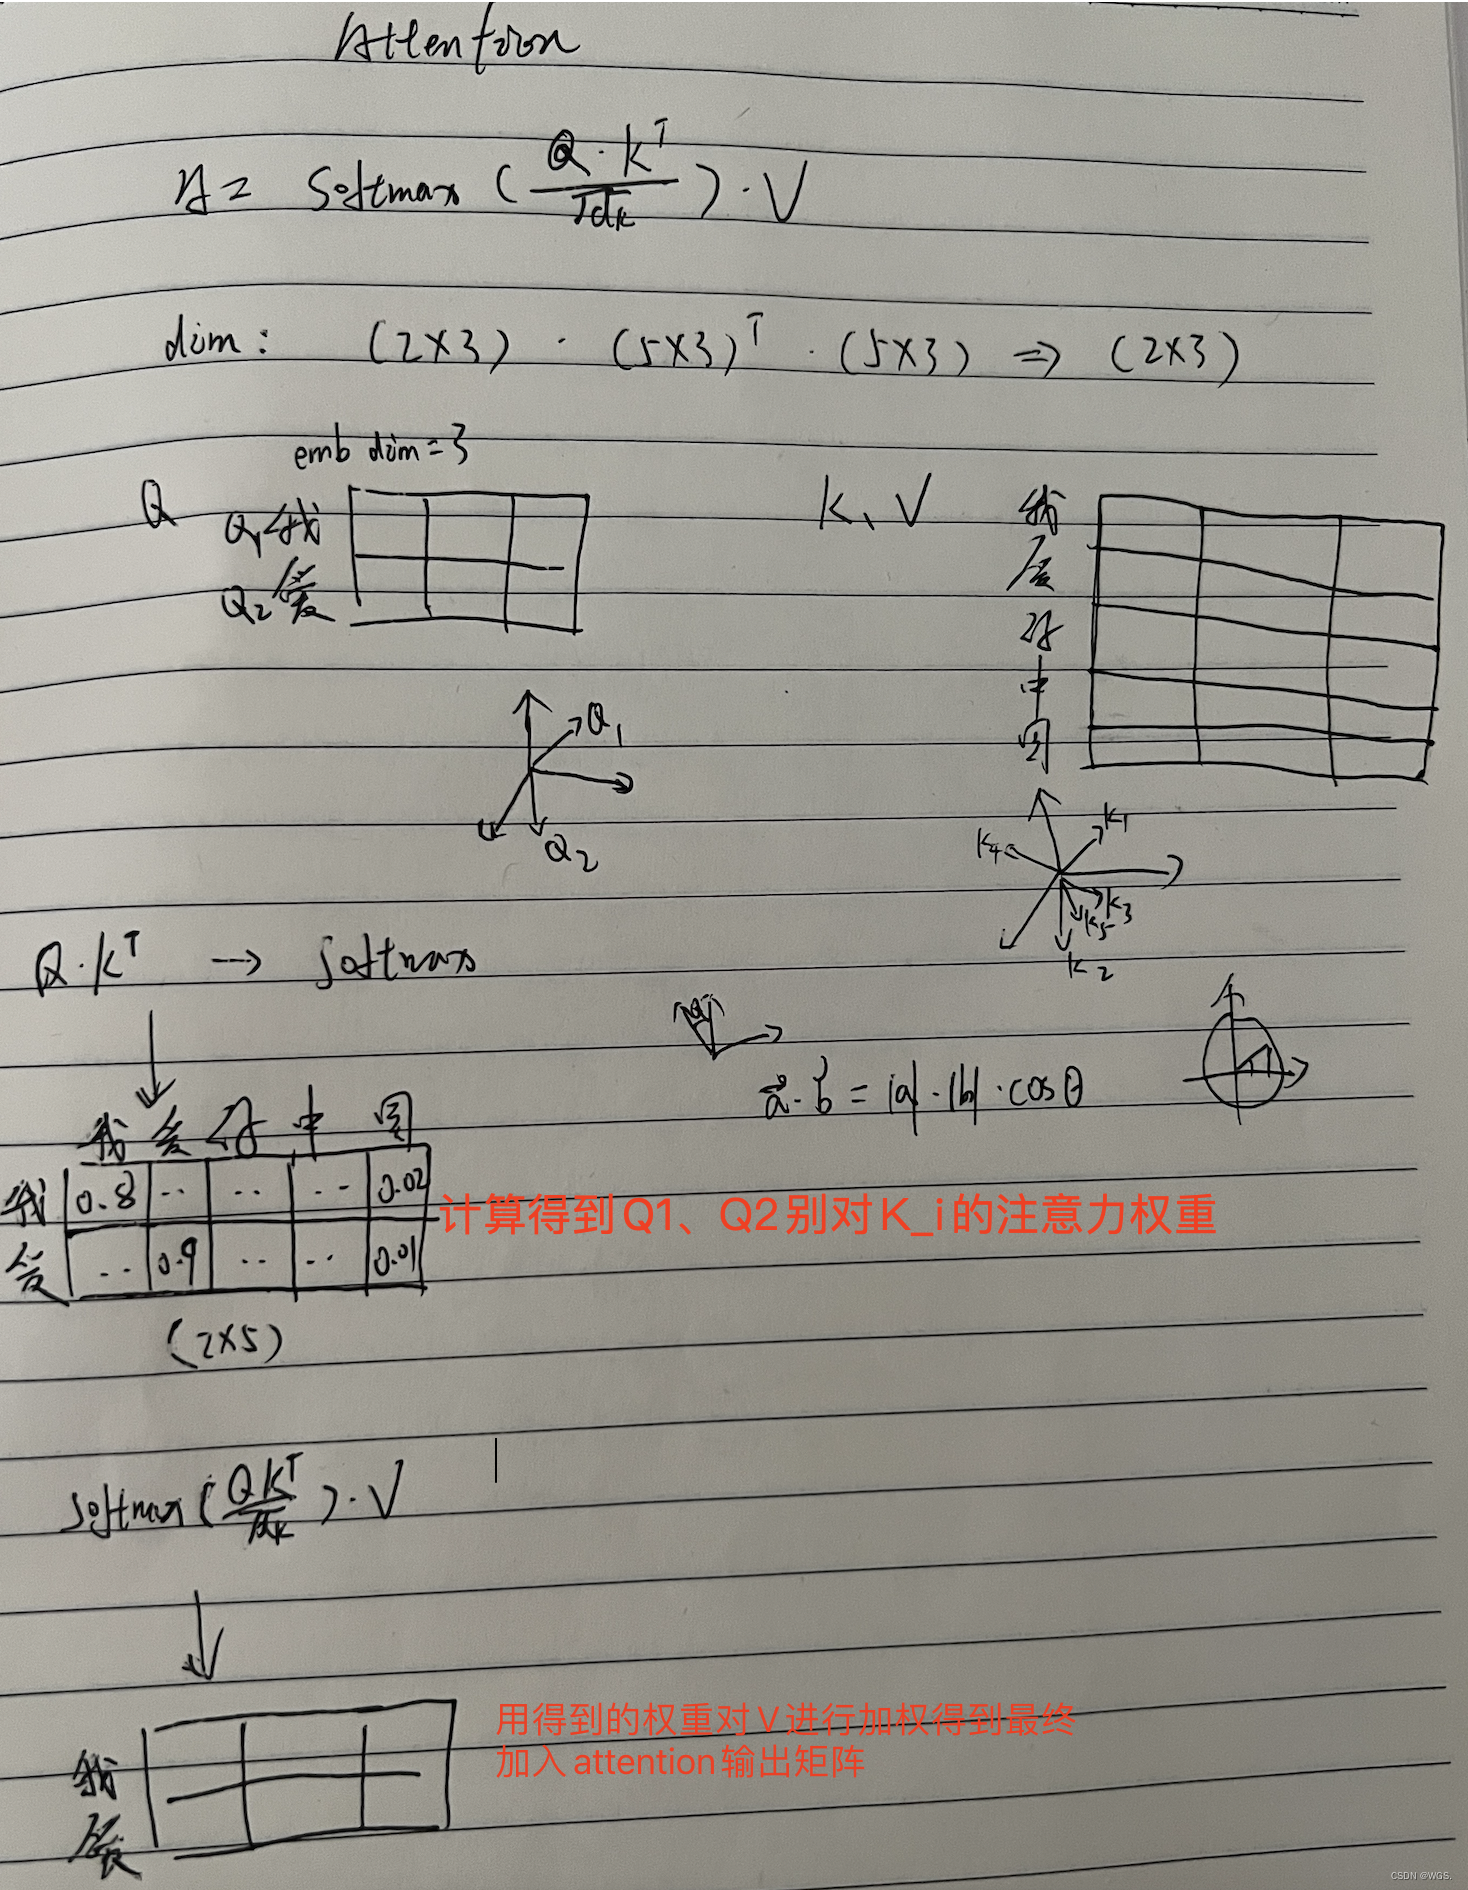 Attention
A = Softmax ( Q · K^T / √dk ) · V
dim: (2×3) · (5×3)^T · (5×3) => (2×3)
emb dim = 3
Q
Q1 我
Q2 爱
K、V
我
爱
你
中
国
Q1
Q2
K1
K4
K3
K5
K2
Q·K^T → softmax
a·b = |a|·|b|·cosθ
我 爱 你 中 国
我 0.8 .. .. .. 0.02
爱 .. 0.9 .. .. 0.01
计算得到Q1、Q2别对K_i的注意力权重
(2×5)
softmax ( QK^T / √dk ) · V
用得到的权重对V进行加权得到最终
加入attention输出矩阵
我
爱
CSDN @WGS.